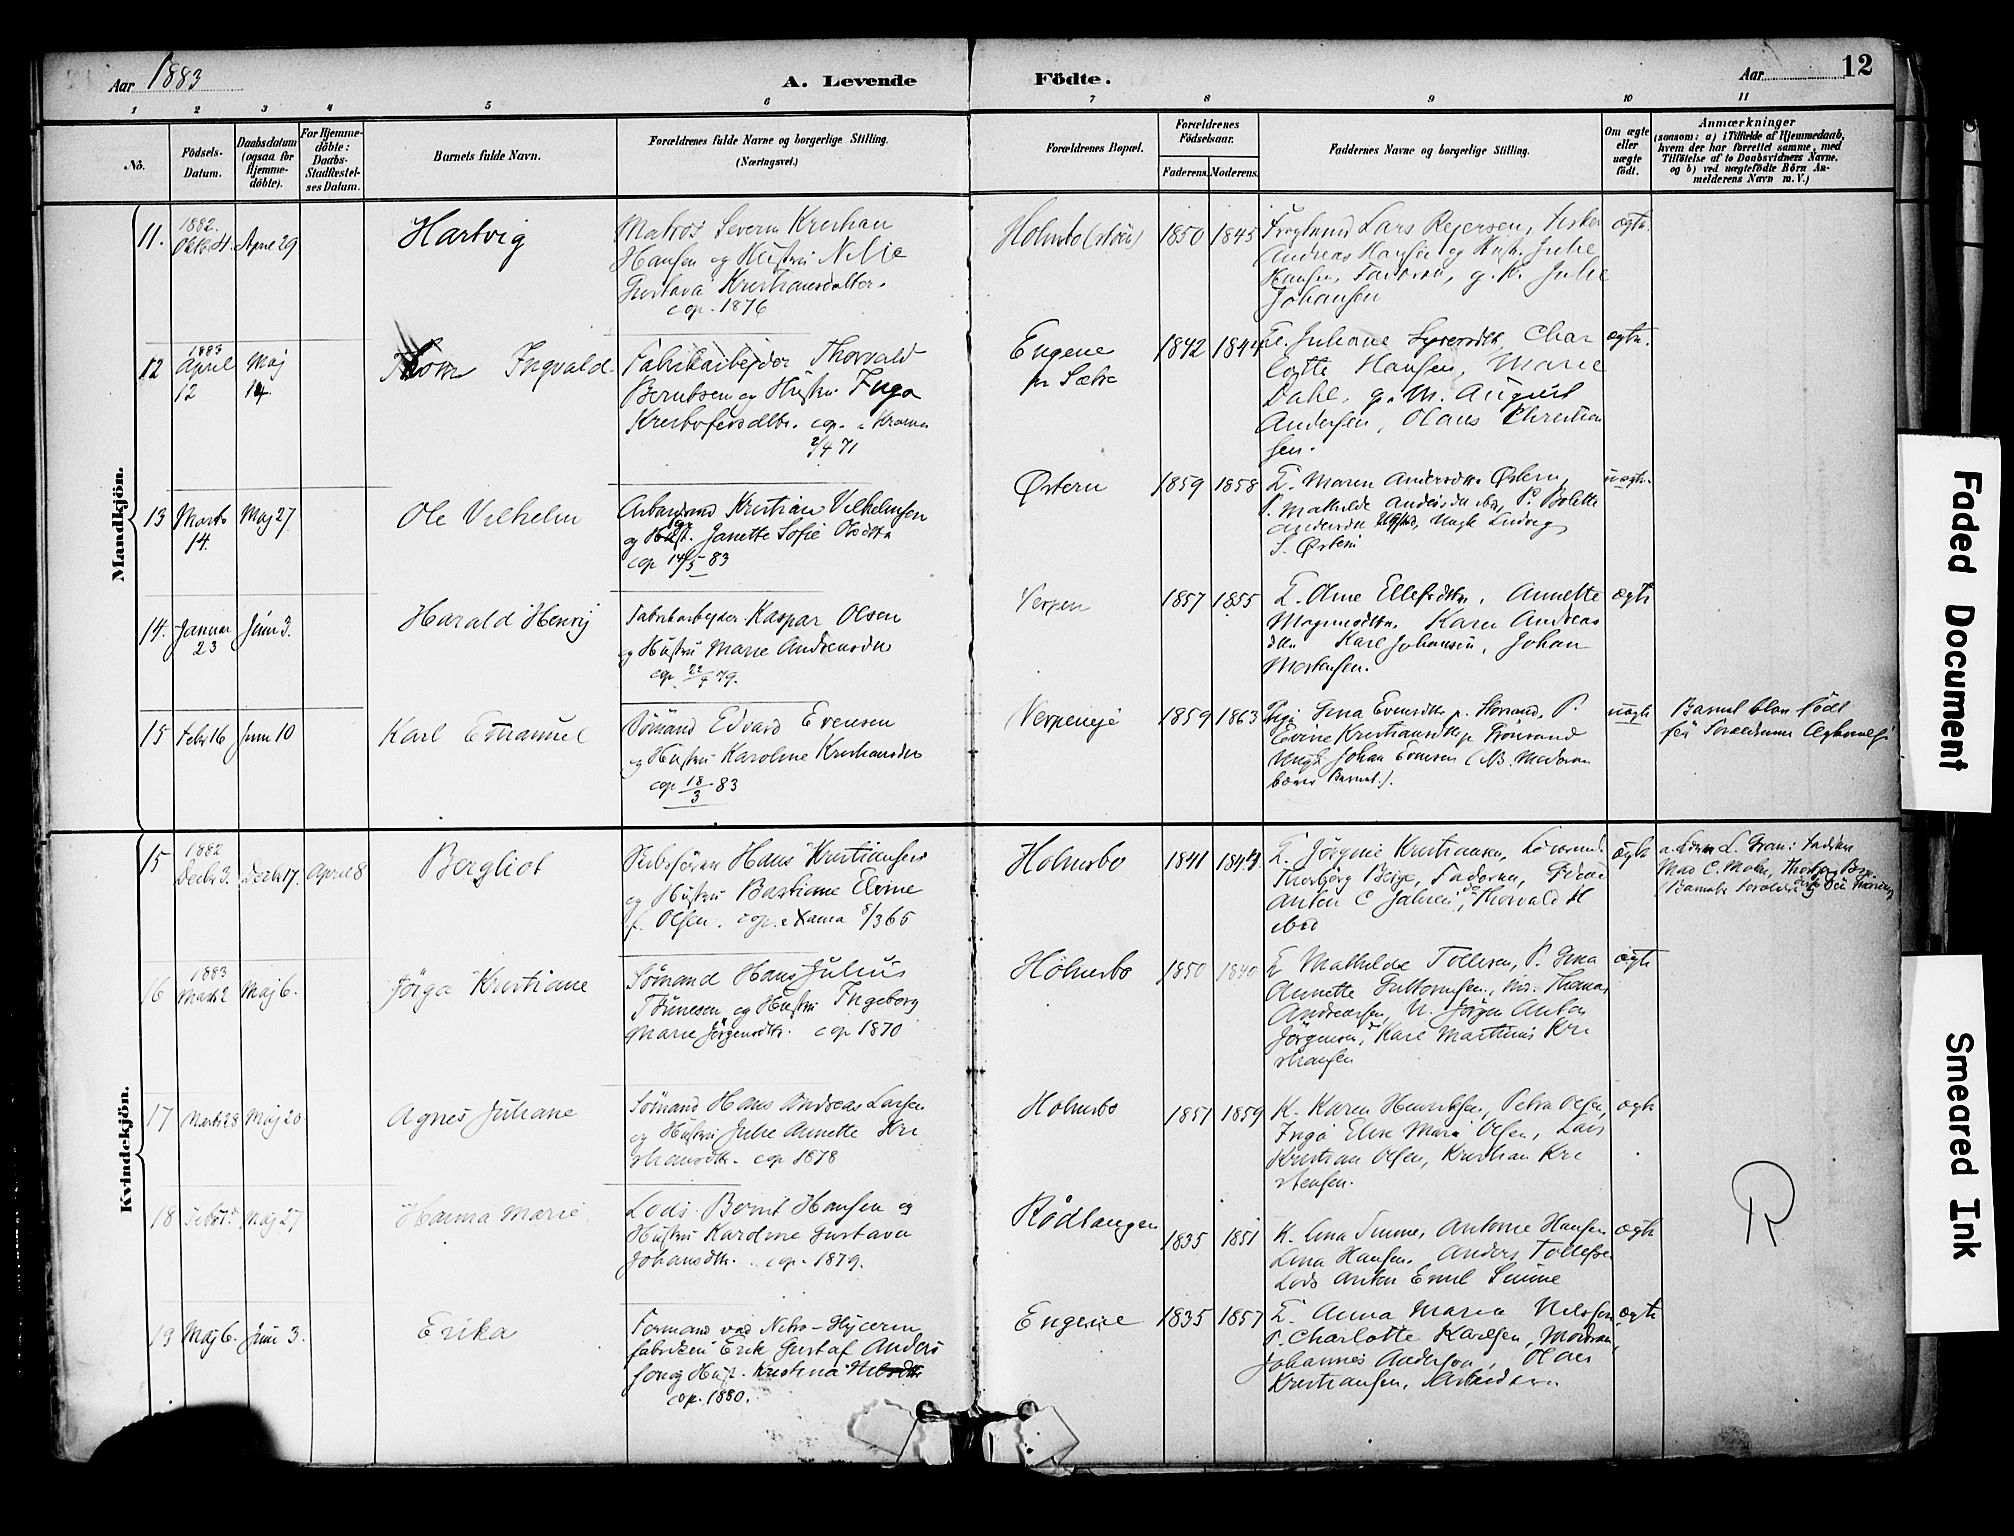 Aar 1883
A. Levende
Födte.
Aar
12
1 2 3 4 5 6 7 8 9 10 11
No.
Födsels-
Datum.
Daabsdatum
(ogsaa for
Hjemme-
döbte).
For Hjemme-
döbte:
Daabs-
Stadfæstel-
ses Datum.
Barnets fulde Navn.
Forældrenes fulde Navne og borgerlige Stilling.
(Næringsvei.)
Forældrenes Bopæl.
Forældrenes
Födselsaar.
Faderens. Moderens.
Faddernes Navne og borgerlige Stilling.
Om ægte
eller
uægte
födt.
Anmærkninger
(saasom: a) i Tilfælde af Hjemmedaab,
hvem der har forrettet samme, med
Tilföielse af to Daabsvidners Navne.
og b) ved uægtefödte Börn An-
melderens Navn m. V.)
Mandkjön.
11.
1882.
Oktb. 4.
April 29
Hartvig
Matros Severin Kristian
Hansen og Hustru Nilie
Gustava Kristiansdatter.
cop. 1876
Holmsbo
1850
1845
Lars Rejersen,
Andreas Hansen og Hust. Julie
Hansen, g. K. Julie
Johansen
ægte.
12
1883
April
12
Maj
14.
Thom Ingvald.
Fabrikarbejder Thorvald
Berntsen og Hustru Inga
Kristofersdtr. cop.
2/4 71
Engene
pr Sætre
1842
1844
E. Juliane Syversdtr, Char
lotte Hansen, Marie
Dahl, g. M. August
Andersen, Olaus Christian
sen.
ægte.
13
Marts
14.
Maj 27
Ole Vilhelm
Arbmand Kristian Vilhelmsen
og Hust. Janette Sofie Olsdtr
cop 14/5 83
Østern
1859
1858
E. Maren Andersdtr. Østern,
P. Mathilde Andersdtr ibd, P. Bolette
Andersdtr Ungk Ludvig
S. Østern
uægte.
14.
Januar
23
Juni 3.
Harald Henrij
Fabrikarbejder Kaspar Olsen
og Hustru Marie Andreasdtr
cop. 22/4 79.
Verpen
1857
1855
E. Oline Ellefsdtr. Annette
Magnusdtr. Karen Andreas
dtr. Karl Johansen, Johan
Mortensen.
ægte
15
Febr 16
Juni 10
Karl Emanuel
Sömand Edvard Evensen
og Hustru Karoline Kristiansdtr
cop 18/3 83
Verpeneje
1859
1863
Pige Gina Evensdtr p. Storsand, P.
Edvine Kristiansdtr p Grönsand
Ungk Johan Evensen (NB. Moderen
bærer Barnet.).
uægte
Barnet blev födt
før Forældrenes Ægteskab
Kvindekjön.
15
1882
Decbr 3.
Decbr 17.
April 8
Bergliot
Skibsförer Hans Kristiansen
og Hustru Bastiane Elvine
f. Olsen. cop. 8/3 65
Holmsbo
1841
1844
E. Jörgine Kristiansen,
Thorbjörg Berge, Faderen,
Anton C Johnsen, Thorvald H
ibid
ægte
16
1883
Marts 2
Maj 6.
Jörga Kristiane
Sömand Hans Julius
Tönnesen og Hustru Ingeborg
Marie Jörgensdtr. cop 1870
Holmsbo
1850
1840
E Mathilde Tollesen, P. Gina
Annette Guttormsen, Thomas
Andreassen, U. Jörgen Anton
Jörgensen, Karl Martinius Kri
stiansen
ægte
17
Marts 28
Maj 20
Agnes Juliane
Sömand Hans Andreas Larsen
og Hustru Julie Annette Kri
stiansdtr. cop 1878
Holmsbo
1851
1859
K. Karen Henriksen, Petra Olsen,
Inga Elise Marie Olsen, Lars
Kristian Olsen, Kristian Kri
stensen.
ægte
18
Maj 27
Hanna Marie
Lods Bernt Hansen og
Hustru Karoline Gustava
Johansdtr. cop. 1879.
Rödtangen
1835
1851
K. Lina Simne, Antonie Hansen
Lina Hansen, Anders Tollefsen
Lods Anton Emil Simne
ægte
R
19
Maj 6.
Juni 3.
Erika
Formand ved Nitro-Glycerin
fabriken Erik Gustaf Anders
son og Hust. Kristina
cop. 1880.
Engene
1835
1857
E. Anna Maria Nilssen,
P. Charlotte Karlsen,
Johannes Anderson, Olaus
Kristiansen, Arbeidere.
ægte
Faded Document
Smeared Ink